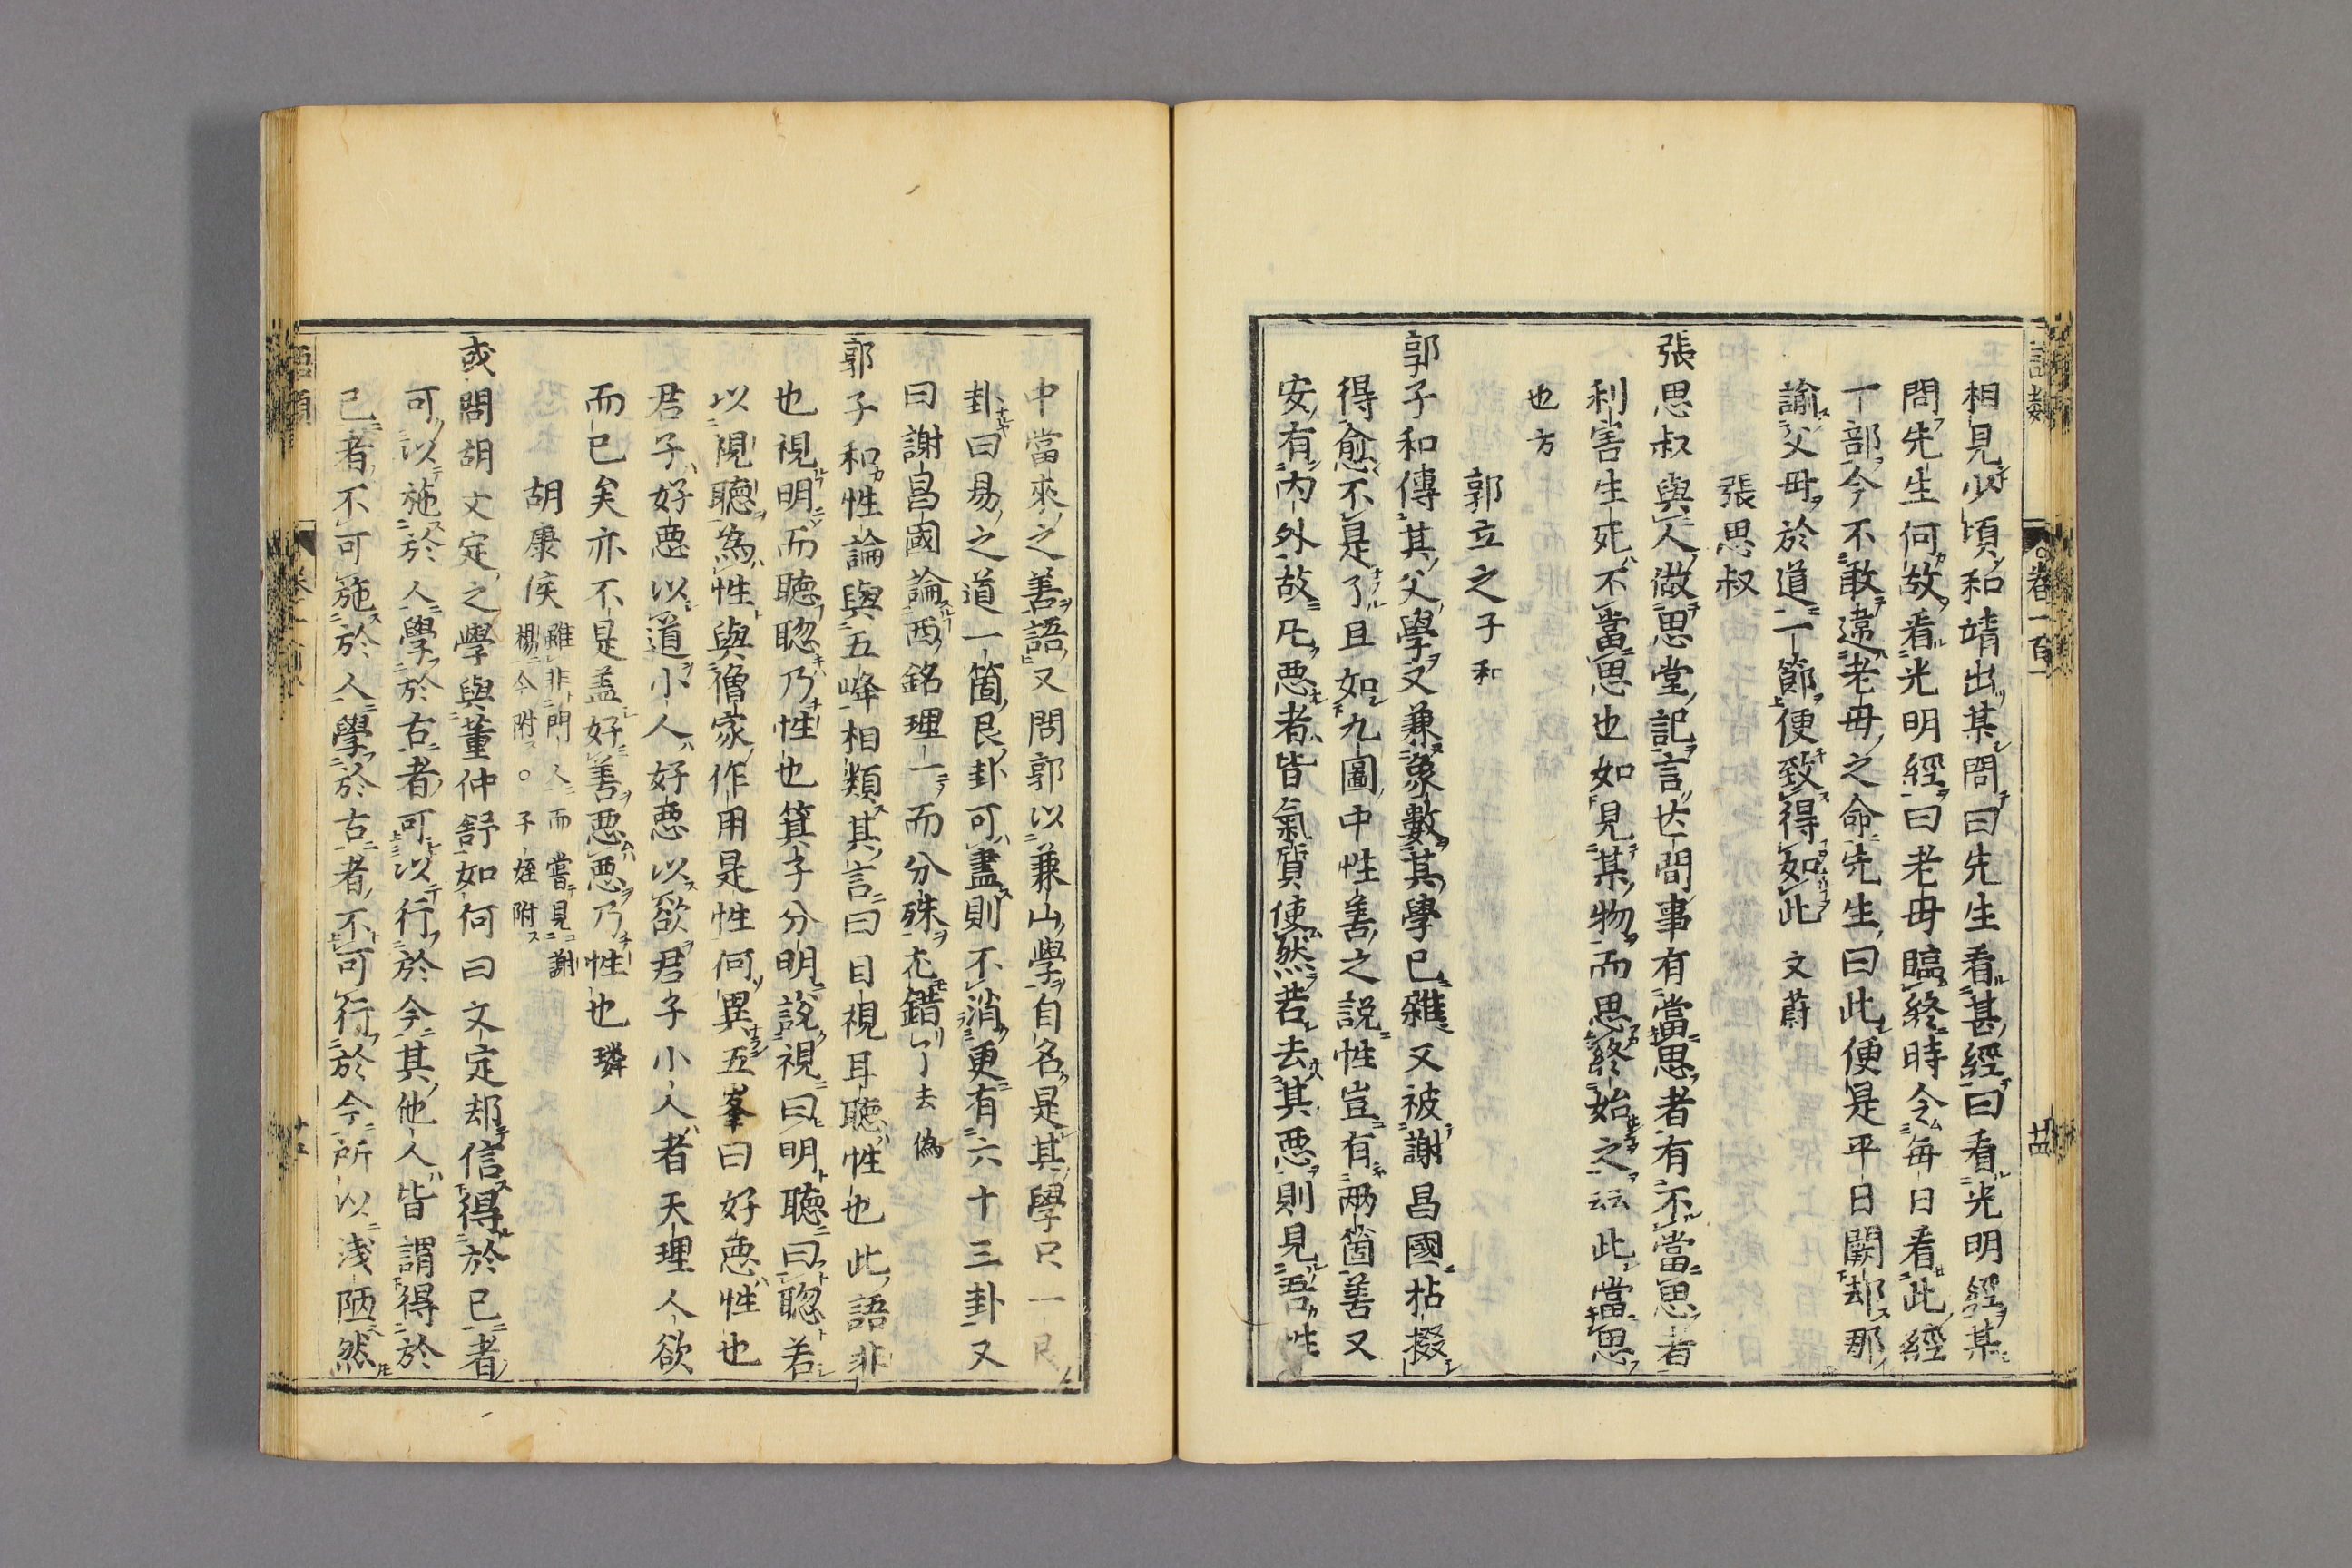 語類
卷一百一
廿四
相見少頃和靖出某問曰先生看甚經曰看光明經某
問先生何故看光明經曰老毋臨終時令每日看此經
一部今不敢違老毋之命先生曰此便是平日闕却那
諭父毋於道一節便致得如此 文蔚
張思叔
張思叔與人做思堂記言世間事有當思者有不當思者
利害生死不當思也如見某物而思終始之云此當思
也方
郭立之子和
郭子和傳其父學又兼象數其學已雜又被謝昌國拈掇
得愈不是了且如九圖中性善之説性豈有兩箇善又
安有内外故凡惡者皆氣質使然若去其惡則見吾性
中當來之善語又問郭以兼山學自名是其學只一艮
卦曰易之道一箇艮卦可盡則不消更有六十三卦又
曰謝昌國論西銘理一而分殊尤錯了去偽
郭子和性論與五峰相類其言曰目視耳聽性也此語非
也視明而聽聦乃性也箕子分明説視曰明聽曰聦若
以視聽為性與僧家作用是性何異五峯曰好惡性也
君子好惡以道小人好惡以欲君子小人者天理人欲
而已矣亦不是盖好善惡惡乃性也 璘
胡康侯 雖非門人而嘗見謝
楊今附○子姪附
或問胡文定之學與董仲舒如何曰文定却信得於已者
可以施於人學於古者可以行於今其他人皆謂得於
已者不可施於人學於古者不可行於今所以淺陋然
語類